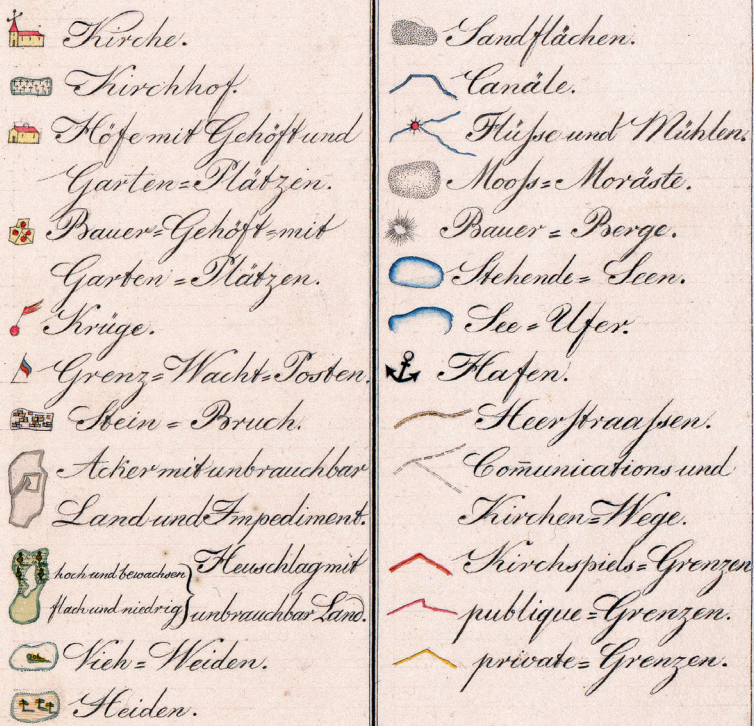 Kirche.
Kirchhof.
Höfe mit Gehöft und
Garten=Plätzen.
Bauer=Gehöft=mit
Garten=Plätzen.
Krüge.
Grenz=Wacht=Posten.
Stein=Bruch.
Acker mit unbrauchbar
Land und Impediment.
hoch und bewachsen } Heuschlag mit
flach und niedrig } unbrauchbar Land.
Vieh=Weiden.
Heiden.
Sandflächen.
Canäle.
Flüsse und Mühlen.
Mooss=Moräste.
Bauer=Berge.
Stehende=Seen.
See=Ufer.
Hafen.
Heerstraassen.
Com̄unications und
Kirchen=Wege.
Kirchspiels=Grenzen
publique=Grenzen.
private=Grenzen.